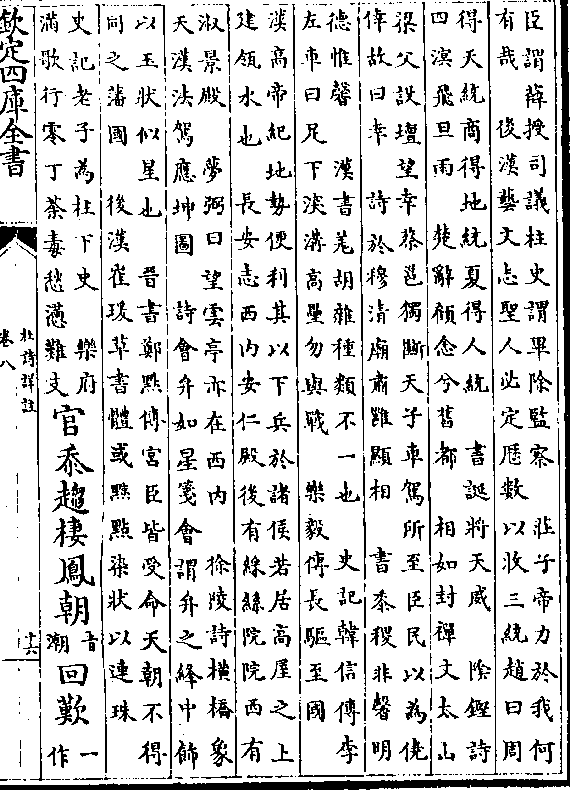 臣謂薛授司議柱史謂畢除監察　莊子帝力於我何
有哉　後漢藝文志聖人必定厯數以收三統趙曰周
得天統商得地統夏得人統　書誕將天威　陰鏗詩
四溟飛旦雨　楚辭顧念兮舊都　相如封禪文太山
梁父設壇望幸蔡邕獨斷天子車駕所至臣民以為僥
倖故曰幸　詩於穆清廟肅雝顯相　書黍稷非馨明
德惟馨　漢書羌胡雜種類不一也　史記韓信傳李
左車曰足下深溝高壘勿與戰　樂毅傳長驅至國
漢高帝紀地勢便利其以下兵於諸侯若居高屋之上
建瓴水也　長安志西内安仁殿後有綵絲院院西有
淑景殿　夢弼曰望雲亭亦在西内　徐陵詩横橋象
天漢法駕應坤圖　詩會弁如星箋會謂弁之縫中飾
以玉狀似星也　晉書鄭黙傳宮臣皆受命天朝不得
同之藩國　後漢崔瑗草書體或黝黝㸃染狀以連珠
史記老子為柱下史　樂府
滿歌行零丁荼毒愁懣難支
官忝趨棲鳳朝
音潮
回歎
一作
欽定四庫全書
杜詩詳註
卷八
十六